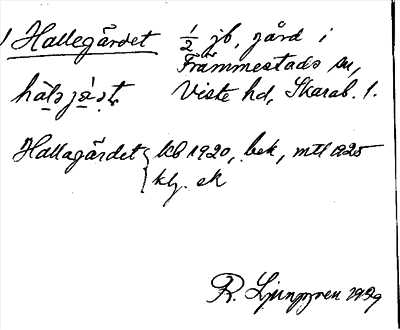 Hallegårdet ½ jb, gård i
Främmestads sn,
Viste hd, Skarab. l.
Hallagårdet { kb 1920, bek, mtl 1925
klg. ek
R. Ljunggren 1929